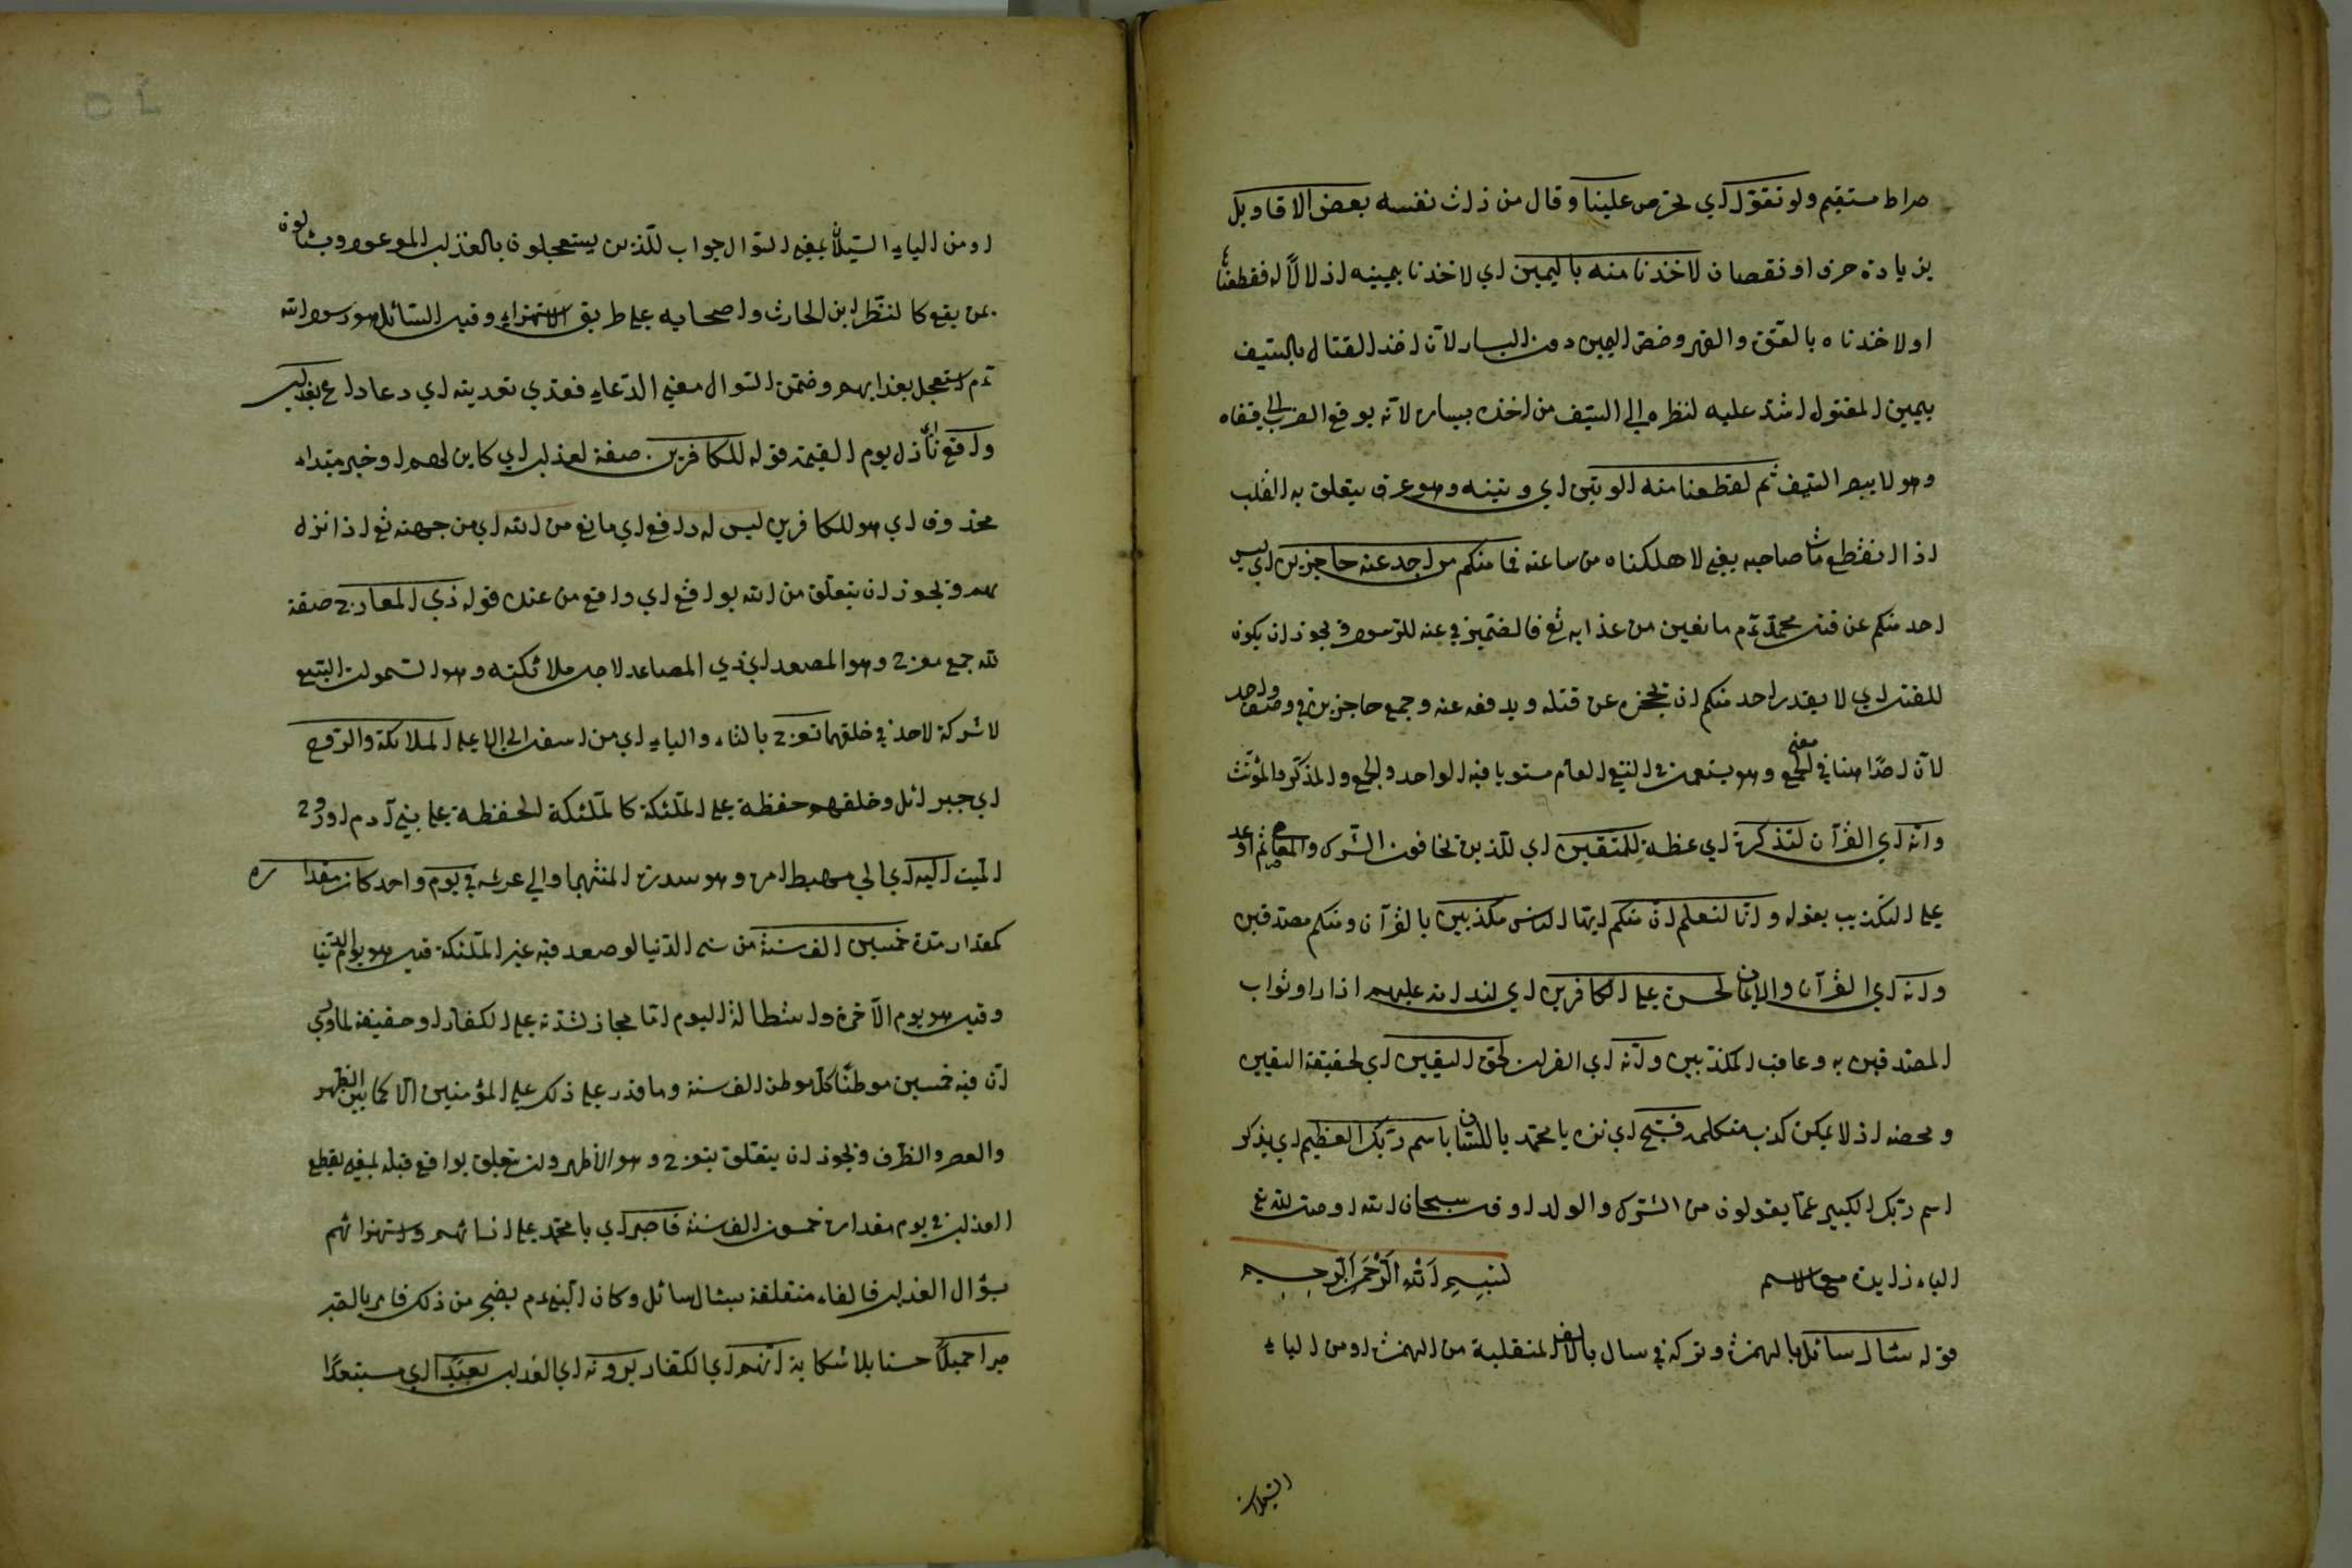 صراط مستقيم ولو تقوّل اي تخرص علينا وقال من ذات نفسه بعض الاقاويل
بزيادة حرف او نقصان لاخذنا منه باليمين اي لاخذنا بيمينه اذلالا له فقطعنا
او لاخذناه بالقوّة والقهر وخصّ اليمين دون اليسار لانّ اخذ القتال بالسّيف
بيمين المقتول اشدّ عليه لنظره الى السّيف من اخذه بيساره لانّه يوقع الضرب الى قفاه
وهو لا يبصر السّيف ثم لقطعنا منه الوتين اي وتينه وهو عرق يتعلق به القلب
اذا انقطع مات صاحبه يعني لاهلكناه من ساعته فما منكم من احد عنه حاجزين اي ليس
احد منكم عن قتل محمّد عم مانعين من عذابه تع فالضمير في عنه للرّسول ويجوز ان يكون
للقتل اي لا يقدر احد منكم ان يحجزه عن قتله ويدفعه عنه وجمع حاجزين في وصف واحد
لانّ احدا هنا في معنى الجمع وهو يستعمل في النّفي العام مستويا فيه الواحد والجمع والمذكّر والمؤنّث
وانّه اي القرآن لتذكرة اي عظة للمتقين اي للّذين يخافون الشّرك والمعاصي ثم اوعد
على التكذيب بقوله وانّا لنعلم انّ منكم ايّها النّاس مكذّبين بالقرآن ومنكم مصدّقين
وانّه اي القرآن والايمان لحسرة على الكافرين اي لندامة عليهم اذا راوا ثواب
المصدّقين به وعاقب المكذّبين وانّه اي القرآن لحق اليقين اي لحقيقة اليقين
ومحضه اذ لا يمكن كذب متكلمه فسبّح اي نزه يا محمّد باللسان باسم ربّك العظيم اي بذكر
اسم ربّك الكبير عمّا يقولون من الشّرك والولد او قل سبحان الله او صلّ لله تع
الباء زايدة مع الاسم بسم الله الرّحمن الرّحيم
قوله سئال سائل بالهمزة وتركه في سال بالالف المنقلبة من الهمزة او من الياء
السّيلان
او من الياء السّيلان بمعنى السّؤال جواب للّذين يستعجلون بالعذاب الموعود ويسئالون
عن يقع كالنّظر ابن الحارث واصحابه على طريق الاستهزاء وقيل السّائل هو رسول الله
عم استعجل بعذابهم وضمّن السّوال معنى الدّعاء فعدّي تعديته اي دعا داع بعذاب
واقع اي نازل يوم القيمة قوله للكافرين صفة لعذاب اي كاين لهم او خبر مبتداء
محذوف اي هو للكافرين ليس له دافع اي مانع من الله اي من جهته تع اذا نزله
بهم ويجوز ان يتعلّق من الله بواقع اي واقع من عنده قوله ذي المعارج صفة
لله جمع معرج وهو المصعد اي ذي المصاعد لاجل ملائكته وهو السّموات السّبع
لا شركة لاحد في خلقها تعرج بالتاء والياء اي من اسفل الى الاعلى الملائكة والرّوح
اي جبرائل وخلقهم حفظة على الملئكة كالملئكة الحفظة على بني آدم او روح
الميت اليه اي الى مهبط امره وهو سدرة المنتهى او الى عرشه في يوم واحد كان مقداره
كمقدار مدّة خمسين الف سنة من سنى الدّنيا لو صعد فيه غير الملئكة قيل هو يوم الدّنيا
وقيل هو يوم الآخرة واستطالة اليوم امّا مجاز لشدّته على الكفّار او حقيقة لما روي
انّ فيه خمسين موطنا كلّ موطن الف سنة وما قدر على ذلك على المؤمنين الّا كما بين الظهر
والعصر والظّرف ويجوز ان يتعّلق بتعرج وهو الاظهر وان يتعلّق بواقع قبله بمعنى يقطع
العذاب في يوم مقداره خمسون الف سنة فاصبر اي يا محمّد على اذاهم واستهزائهم
بسؤال العذاب فالفاء متعلقة بسئال سائل وكان النبي عم يضجر من ذلك فامر بالصّبر
صبرا جميلا حسنا بلا شكاية انّهم اي الكفّار يرونه اي العذاب بعيدا اي مستبعدًا